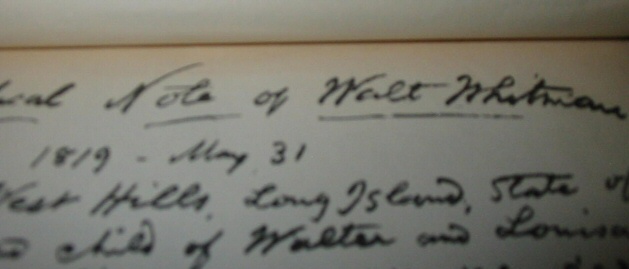 ical Note of Walt Whitman
1819 - May 31
West Hills, Long Island, State of
child of Walter and Louisa